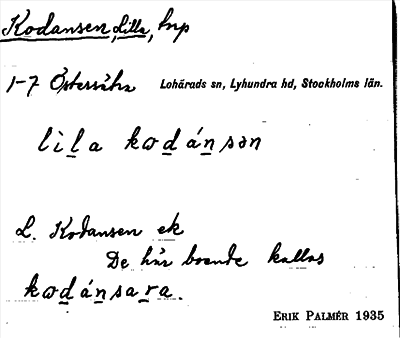 Kodansen, Lilla, lnp
1-7 Östersåtra Lohärads sn, Lyhundra hd, Stockholms län.
lìḻa kωḏáṉsən
L. Kodansen ek
De här boende kallas
kωḏáṉsaṟa.
ERIK PALMÉR 1935